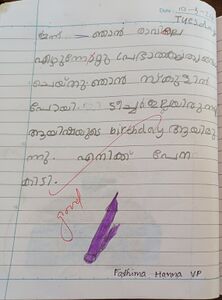 Date: 10
Tuesday
ഇന്ന് ഞാൻ രാവിലെ
എഴുന്നേറ്റു
ചെയ്തു. ഞാൻ സ്കൂളിൽ
പോയി.
ആയിഷയുടെ birthday ആയിരു
ന്നു. എനിക്ക് പേന
കിട്ടി.
good
Fathima Hanna VP